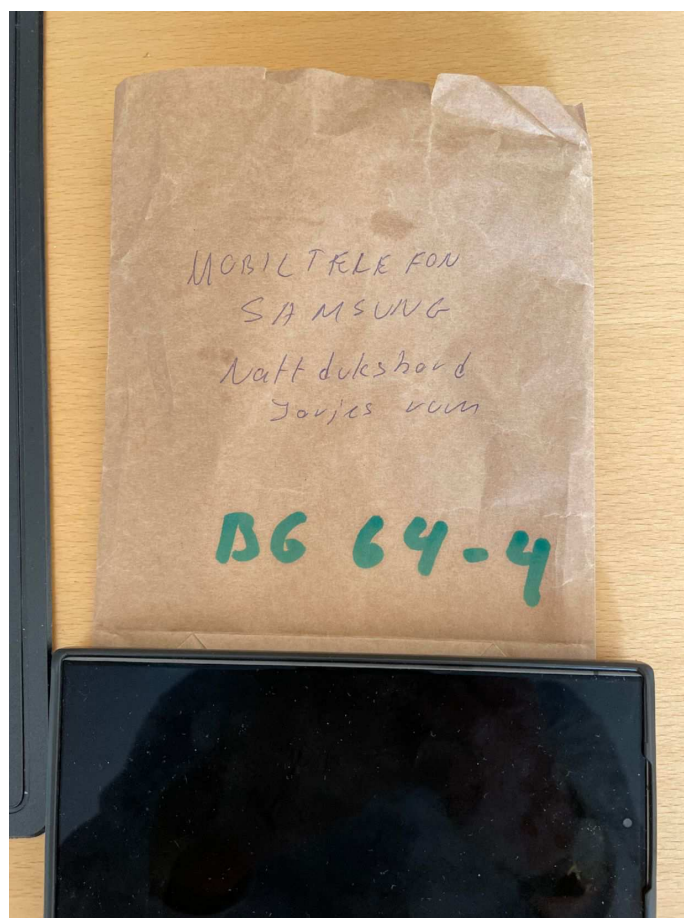 MOBILTELEFON
SAMSUNG
Nattduksbord
Jorjes rum
BG 64-4